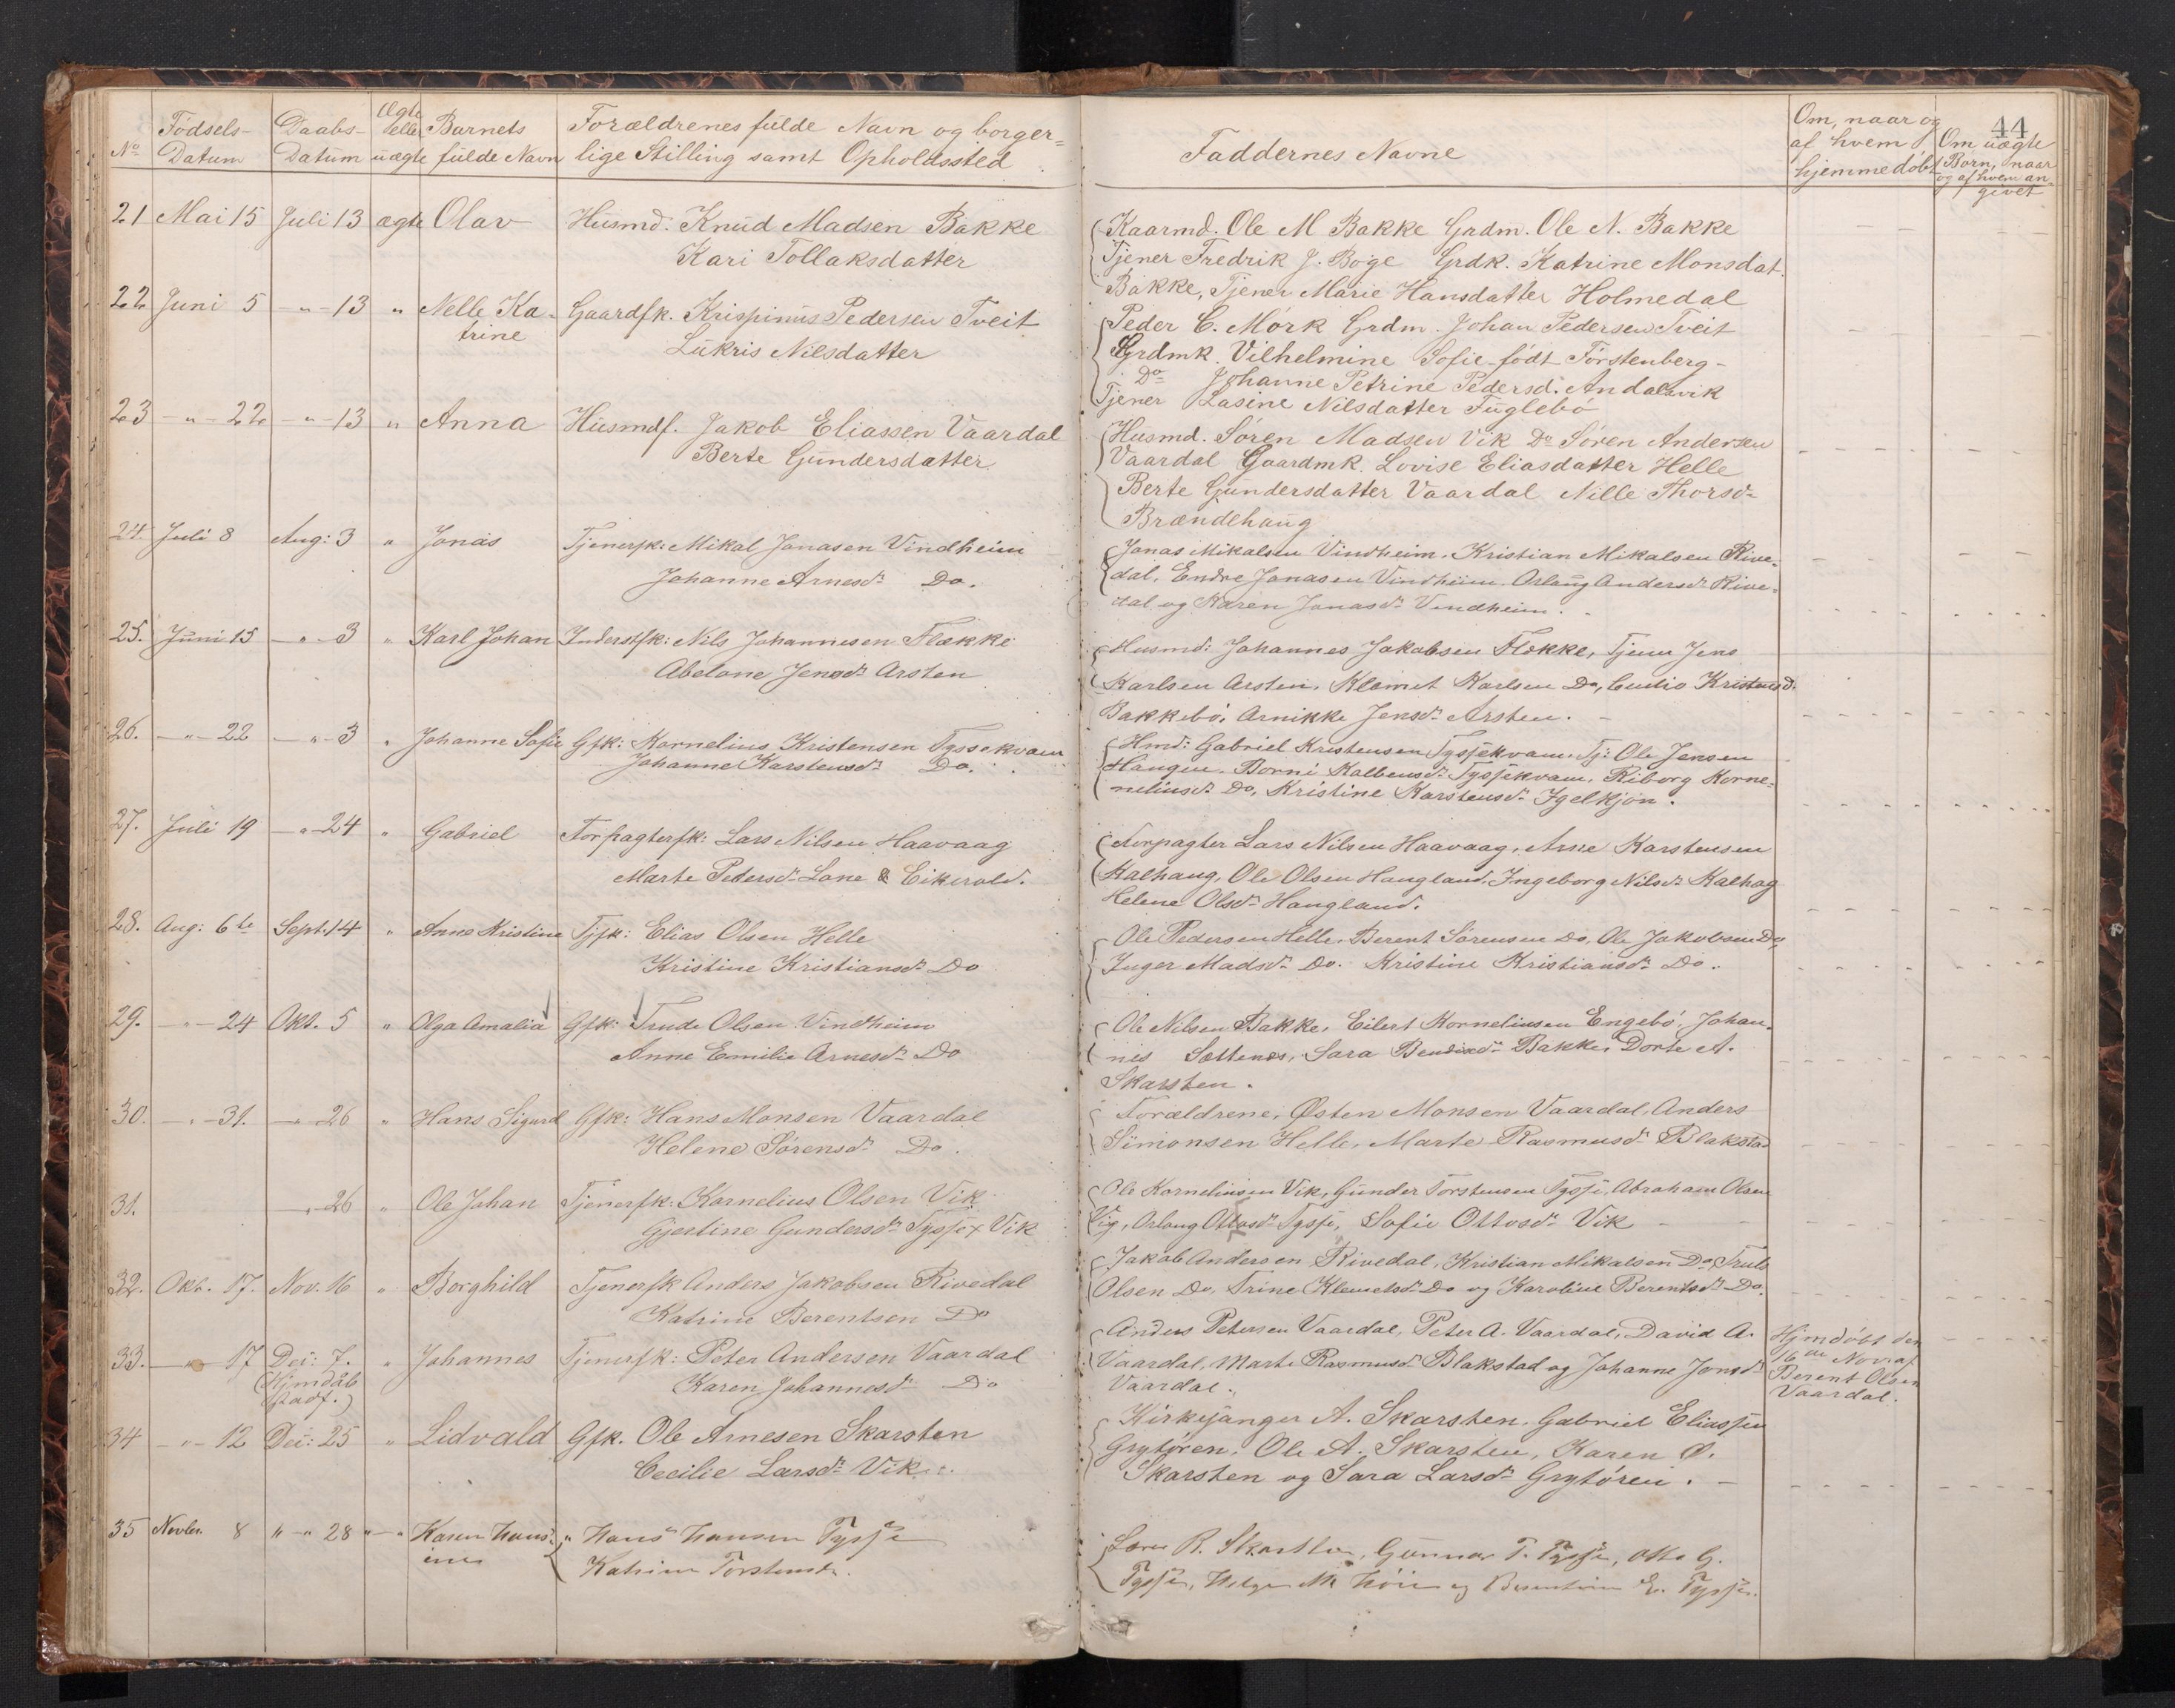 44
No
Födsels-
Datum
Daabs-
Datum
Ægte
eller
uægte
Barnets
fulde Navn
Forældrenes fulde Navn og borger-
lige Stilling samt Opholdssted
Faddernes Navne
Om, naar og
af hvem
hjemmedøbt
Om uægte
Børn, naar
og af hvem an-
givet
21 Mai 15 Juli 13 ægte Olav Husmd. Knud Madsen Bakke
Kari Tollaksdatter
Kaarmd. Ole M Bakke Grdm. Ole N. Bakke
Tjener Fredrik J. Böge Grdk. Katrine Monsdat.
Bakke, Tjener Marie Hansdatter Holmedal
22 Juni 5 -"- 13 " Nelle Ka- Gaardfk. Krispinus Pedersen Tveit
trine Lukris Nilsdatter
Peder C. Mörk Grdm. Johan Pedersen Tveit
Grdmk. Vilhelmine Sofie födt Förstenberg-
Do Johanne Petrine Pedersd. Andalsvik
Tjener Lasine Nilsdatter Fuglebö
23 -"- 22 -"- 13 " Anna Husmdf. Jakob Eliassen Vaardal
Berte Gundersdatter
Husmd. Sören Madsen Vik Do Sören Andersen
Vaardal Gaardmk. Lovise Eliasdatter Helle
Berte Gundersdatter Vaardal Nille Thorsd.
Brændehaug
24. Juli 8 Aug: 3 " Jonas Tjenerfk: Mikal Jonasen Vindheim
Johanne Arnesdr. Do.
Jonas Mikalsen Vindheim, Kristian Mikalsen Rive-
dal, Endre Jonasen Vindheim. Orlaug Andersdr. Rive-
dal og Karen Jonasdr. Vindheim.
25. Juni 15 -"- 3 " Karl Johan Inderstfk: Nils Johannesen Flække
Abelone Jensdr. Arsten
Husmd: Johannes Jakobsen Flekke, Tjener Jens
Karlsen Arsten, Klemet Karlsen Do, Kristensd.
Bakkebö, Arnikke Jensdr. Arsten.
26. -"- 22 -"- 3 " Johanne Sofie Gfk: Kornelius Kristensen Tyssekvam
Johanne Karstensdr. Do.
Hmd: Gabriel Kristensen Tyssekvam, Tj: Ole Jensen
Haugen, Borni Kalbensdr. Tyssekvam, Riborg Korne-
neliusdr. Do, Kristine Karstensdr. Igelkjön.
27. Juli 19 -"- 24 " Gabriel Forpagterfk: Lars Nilsen Haavaag
Marte Pedersdr. Lone & Eikevold.
Forpagter Lars Nilsen Haavaag, Arne Karstensen
Kalhaug, Ole Olsen Haugland, Ingeborg Nilsdr. Kalhag
Helene Olsdr. Haugland.
28. Aug: 6te Sept. 14 " Anne Kristine Tjfk: Elias Olsen Helle
Kristine Kristiansdr. Do
Ole Pedersen Helle, Berent Sörensen Do, Ole Jakobsen Do,
Inger Madsdr. Do. Kristine Kristiansdr. Do.
29. -"- 24 Okt. 5 " Olga Amalia Gfk: Trude Olsen Vindheim
Anne Emilie Arnesdr. Do
Ole Nilsen Bakke, Eilert Korneliusen Engebö, Johan-
nes Sættenes, Sara Bendixdr. Bakke, Dorte A.
Skarsten.
30. -"- 31. -"- 26 " Hans Sigurd Gfk: Hans Monsen Vaardal
Helene Sörensdr. Do.
Forældrene, Østen Monsen Vaardal, Anders
Simonsen Helle, Marte Rasmusdr. Blakstad
31. -"- 26 " Ole Johan Tjenerfk: Kornelius Olsen Vik
Gjertine Gundersdr. Tysse x Vik
Ole Korneliusen Vik, Gunder Torstensen Tysse, Abraham Olsen
Vig, Orlaug Ottosdr. Tysse, Sofie Ottosdr. Vik
32. Okt. 17. Nov. 16 " Borghild Tjenerfk Anders Jakobsen Rivedal
Katrine Berentsen Do
Jakob Andersen Rivedal, Kristian Mikalsen Do, Truls
Olsen Do, Trine Klemetsdr. Do og Karoline Berentsdr. Do.
33. -"- 17 Dec: 7. " Johannes Tjenerfk: Peter Andersen Vaardal
(Hjmdåb
stadf.) Karen Johannesdr. Do
Anders Petersen Vaardal, Peter A. Vaardal, David A.
Vaardal, Marte Rasmusdr. Blakstad og Johanne Jonsdr.
Vaardal.
Hjmdöbt den
16de Nov. af
Berent Olsen
Vaardal.
34 -"- 12 Dec: 25 " Lidvald Gfk. Ole Arnesen Skarsten
Cecilie Larsdr. Vik
Kirkesanger A. Skarsten, Gabriel Eliassen
Grytören, Ole A. Skarsten, Karen O.
Skarsten og Sara Larsdr. Grytören.
35 Novbr. 8 " -"- 28 " -"- Karen Hans- " Hans Hansen Tysse
ine Katrine Torstensdr.
Lærer R. Skarsten, Gunnar T. Tysse, Otto G.
Tysse, Helge M. og E. Tysse.